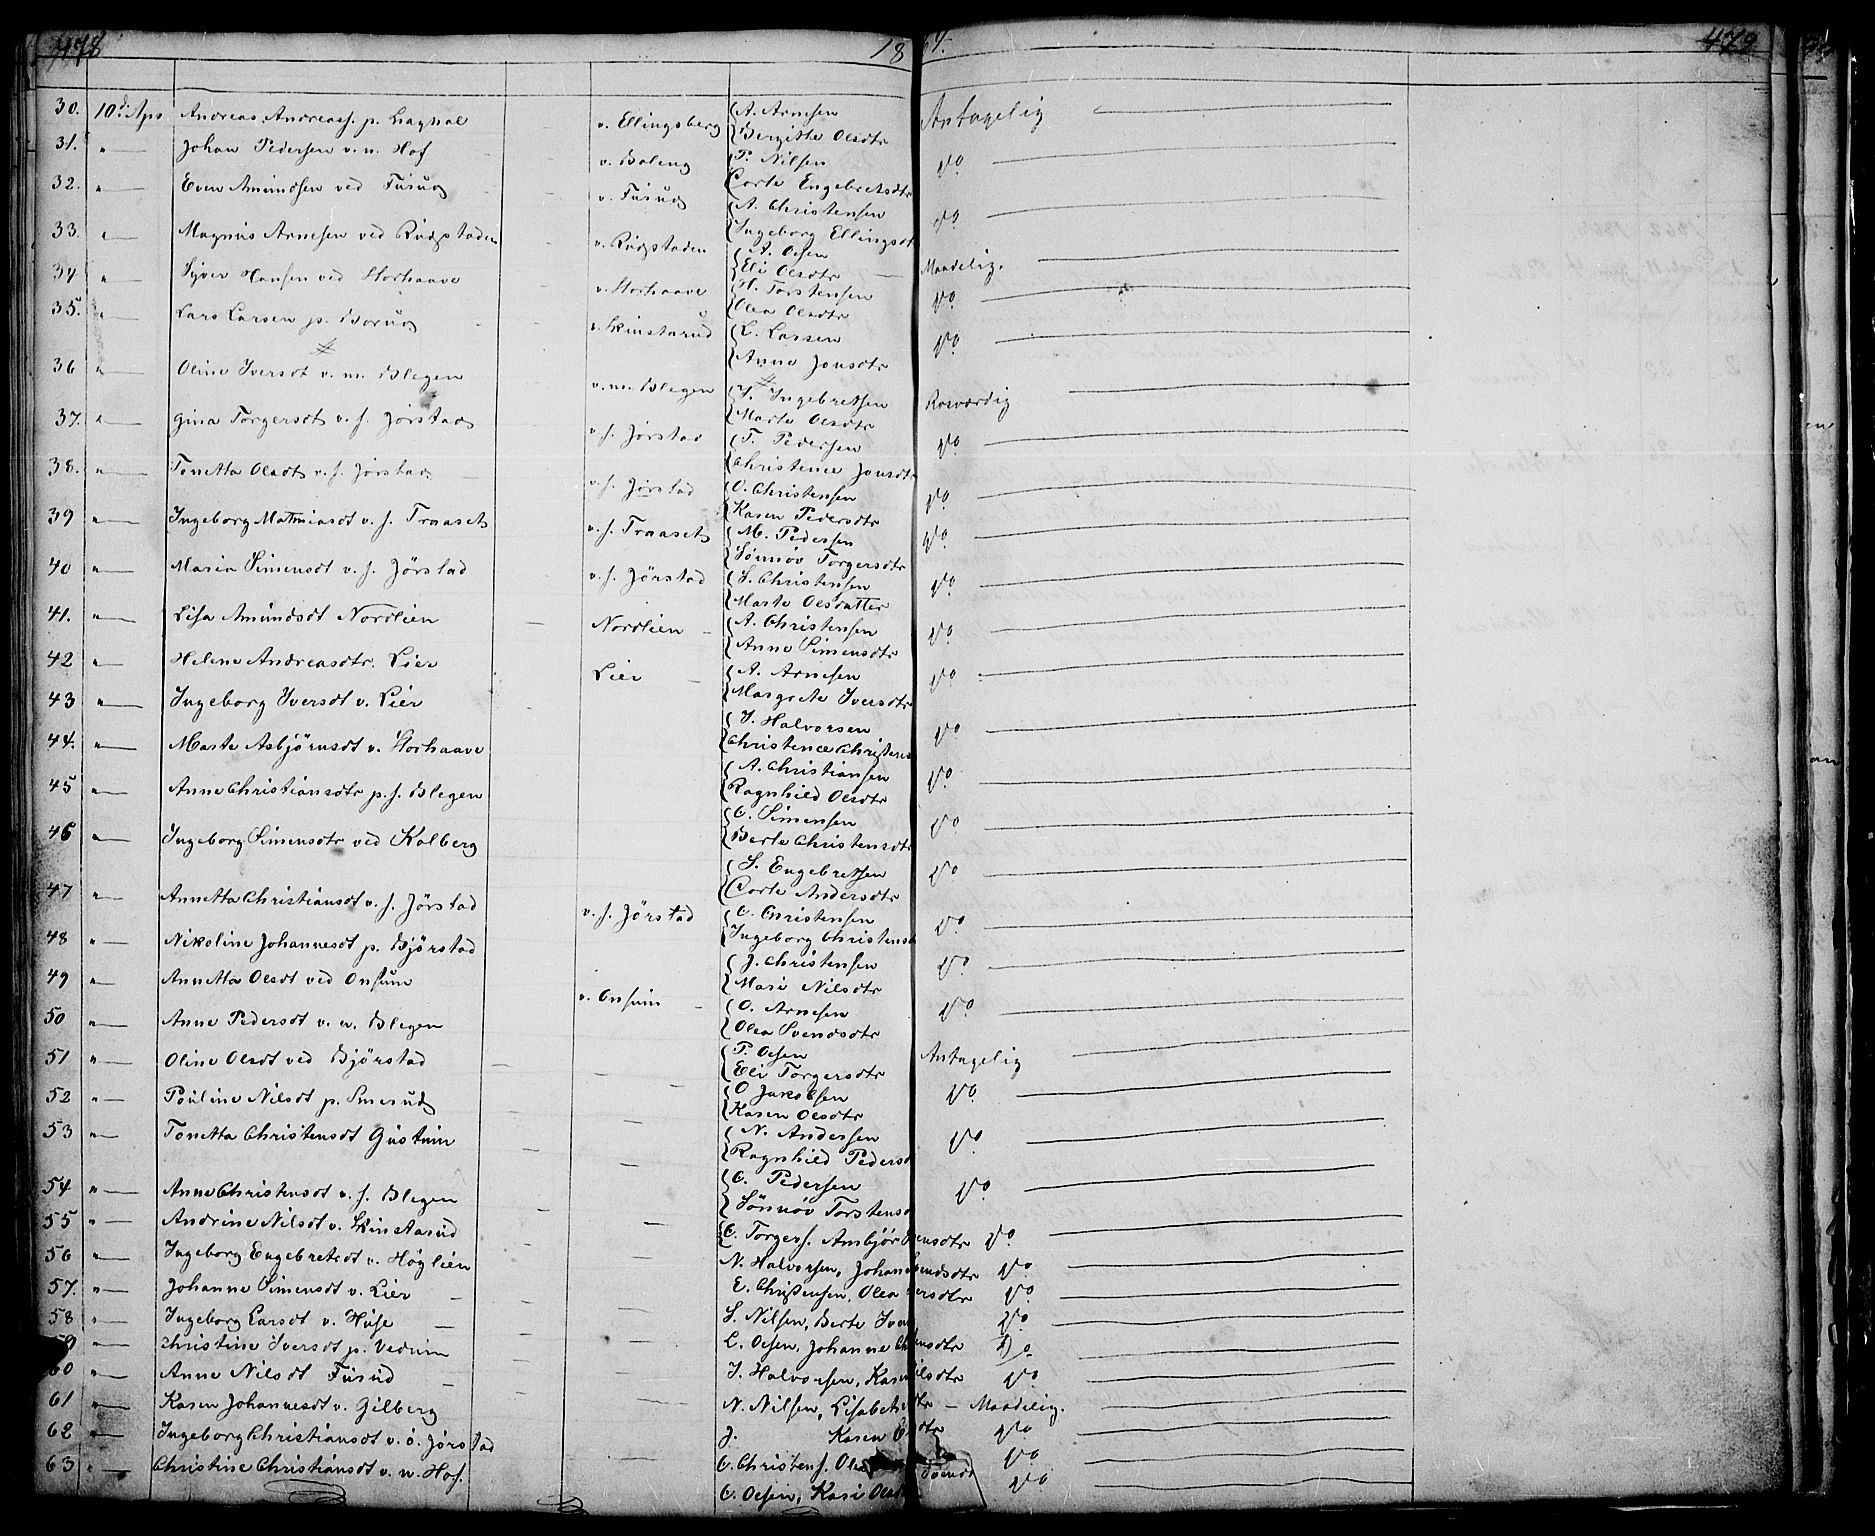 478 18 64. 479
30. 10d. Apr Andreas Andreass. p. v. Ellingsberg A. Arnesen Antagelig
Bergitte Olsdtr
31. " Johan Pedersen v. n. Hof v. Baleng P. Nilsen Do
Corte Engebretsdtr
32. " Even Amundsen ved Fusug v. Fusug A. Christensen Do
Ingeborg Ellingsdt
33. " Magnus Arnesen ved Rudsstaden v. Rudsstaden A. Olsen Maadelig.
Eli Olsdtr
34 " Syver Hansen ved Storhaave v. Storhaave H. Torstensen Do
Olea Olsdtr
35. " Lars Larsen p. Borug v. Skinstarud L. Larsen Do
Anne Jonsdtr
36 " Oline Iversdt v. m. Blegen v. m. Blegen I. Ingebretsen Rosværdig
Marte Olsdtr
37. " Gina Torgersdt v. s. Jørstad v. s. Jørstad T. Pedersen Do
Christence Jonsdtr
38. " Tonetta Olsdt v. s. Jørstad v. s. Jørstad O. Christensen Do
Karen Pedersdtr
39 " Ingeborg Mathiasdt v. s. Traaset v. s. Traaset M. Pedersen Do
Sønnøv Torgersdtr
40 " Maria Simensdt v. s. Jørstad v. s. Jørstad S. Christensen Do
Marte Olsdatter
41. " Lisa Amundsdt Nordlien Nordlien A. Christensen Do
Anne Simensdtr
42 " Helene Andreasdtr. Lier Lier A. Arnesen Do
Margrete Iversdtr
43 " Ingeborg Iversdt v. Lier I. Halvorsen Do
Christence Christens
44. " Marte Asbjørnsdt v. Storhaave A. Christiansen Do
Ragnhild Olsdtr
45 " Anne Christiansdtr p. s. Blegen C. Simensen Do
Berte Christensdtr
46 " Ingeborg Simensdtr ved Kolberg S. Engebretsen Do
Corte Andersdtr
47 " Annetta Christiansdt v. s. Jørstad v. s. Jørstad C. Christensen Do
Ingeborg Christensd
48 " Nikoline Johannesdt p. Bjørstad J. Christensen Do
Mari Nilsdtr
49 " Annetta Olsdt ved Onsum v. Onsum O. Arnesen Do
Olea Svendsdtr
50 " Anne Pedersdt v. n. Blegen P. Olsen Antagelig
Eli Torgersdtr
51 " Oline Olsdt ved Bjørstad O Jakobsen Do
Karen Olsdtr
52 " Pouline Nilsdt p. Smerud N. Andersen Do
Ragnhild Pedersd
53 " Tonetta Christensdt Gustum C. Pedersen Do
Sønnøv Torstensd
54 " Anne Christensdt v. s. Blegen C. Torgers. Ambjør ensdtr Do
55 " Andrine Nilsdt v. Skinstarud N. Halvorsen, Johan endsdtr Do
56 " Ingeborg Engebretsdt v. Høglien E. Christensen, Olea ersdtr Do
57. " Johanne Simensdt v. Lier S. Nilsen, Berte Iver Do
58 " Ingeborg Larsdt v. Huse L. Olsen, Johanne Ch ensdtr Do
59 " Christine Iversdt p. Vedum I. Halvorsen, Karen ilsdtr Do
60 " Anne Nilsdt Fusud N. Nilsen, Lisabeth dtr Maadelig.
61 " Karen Johannesdt v. Gilberg J. Karen O dtr Do
62 " Ingeborg Christiansdt v. ö. Jørstad C. Christens. Olea Svendt Do
63 " Christine Christiansdt v. n. Hof. C. Olsen, Kari Olsd Do